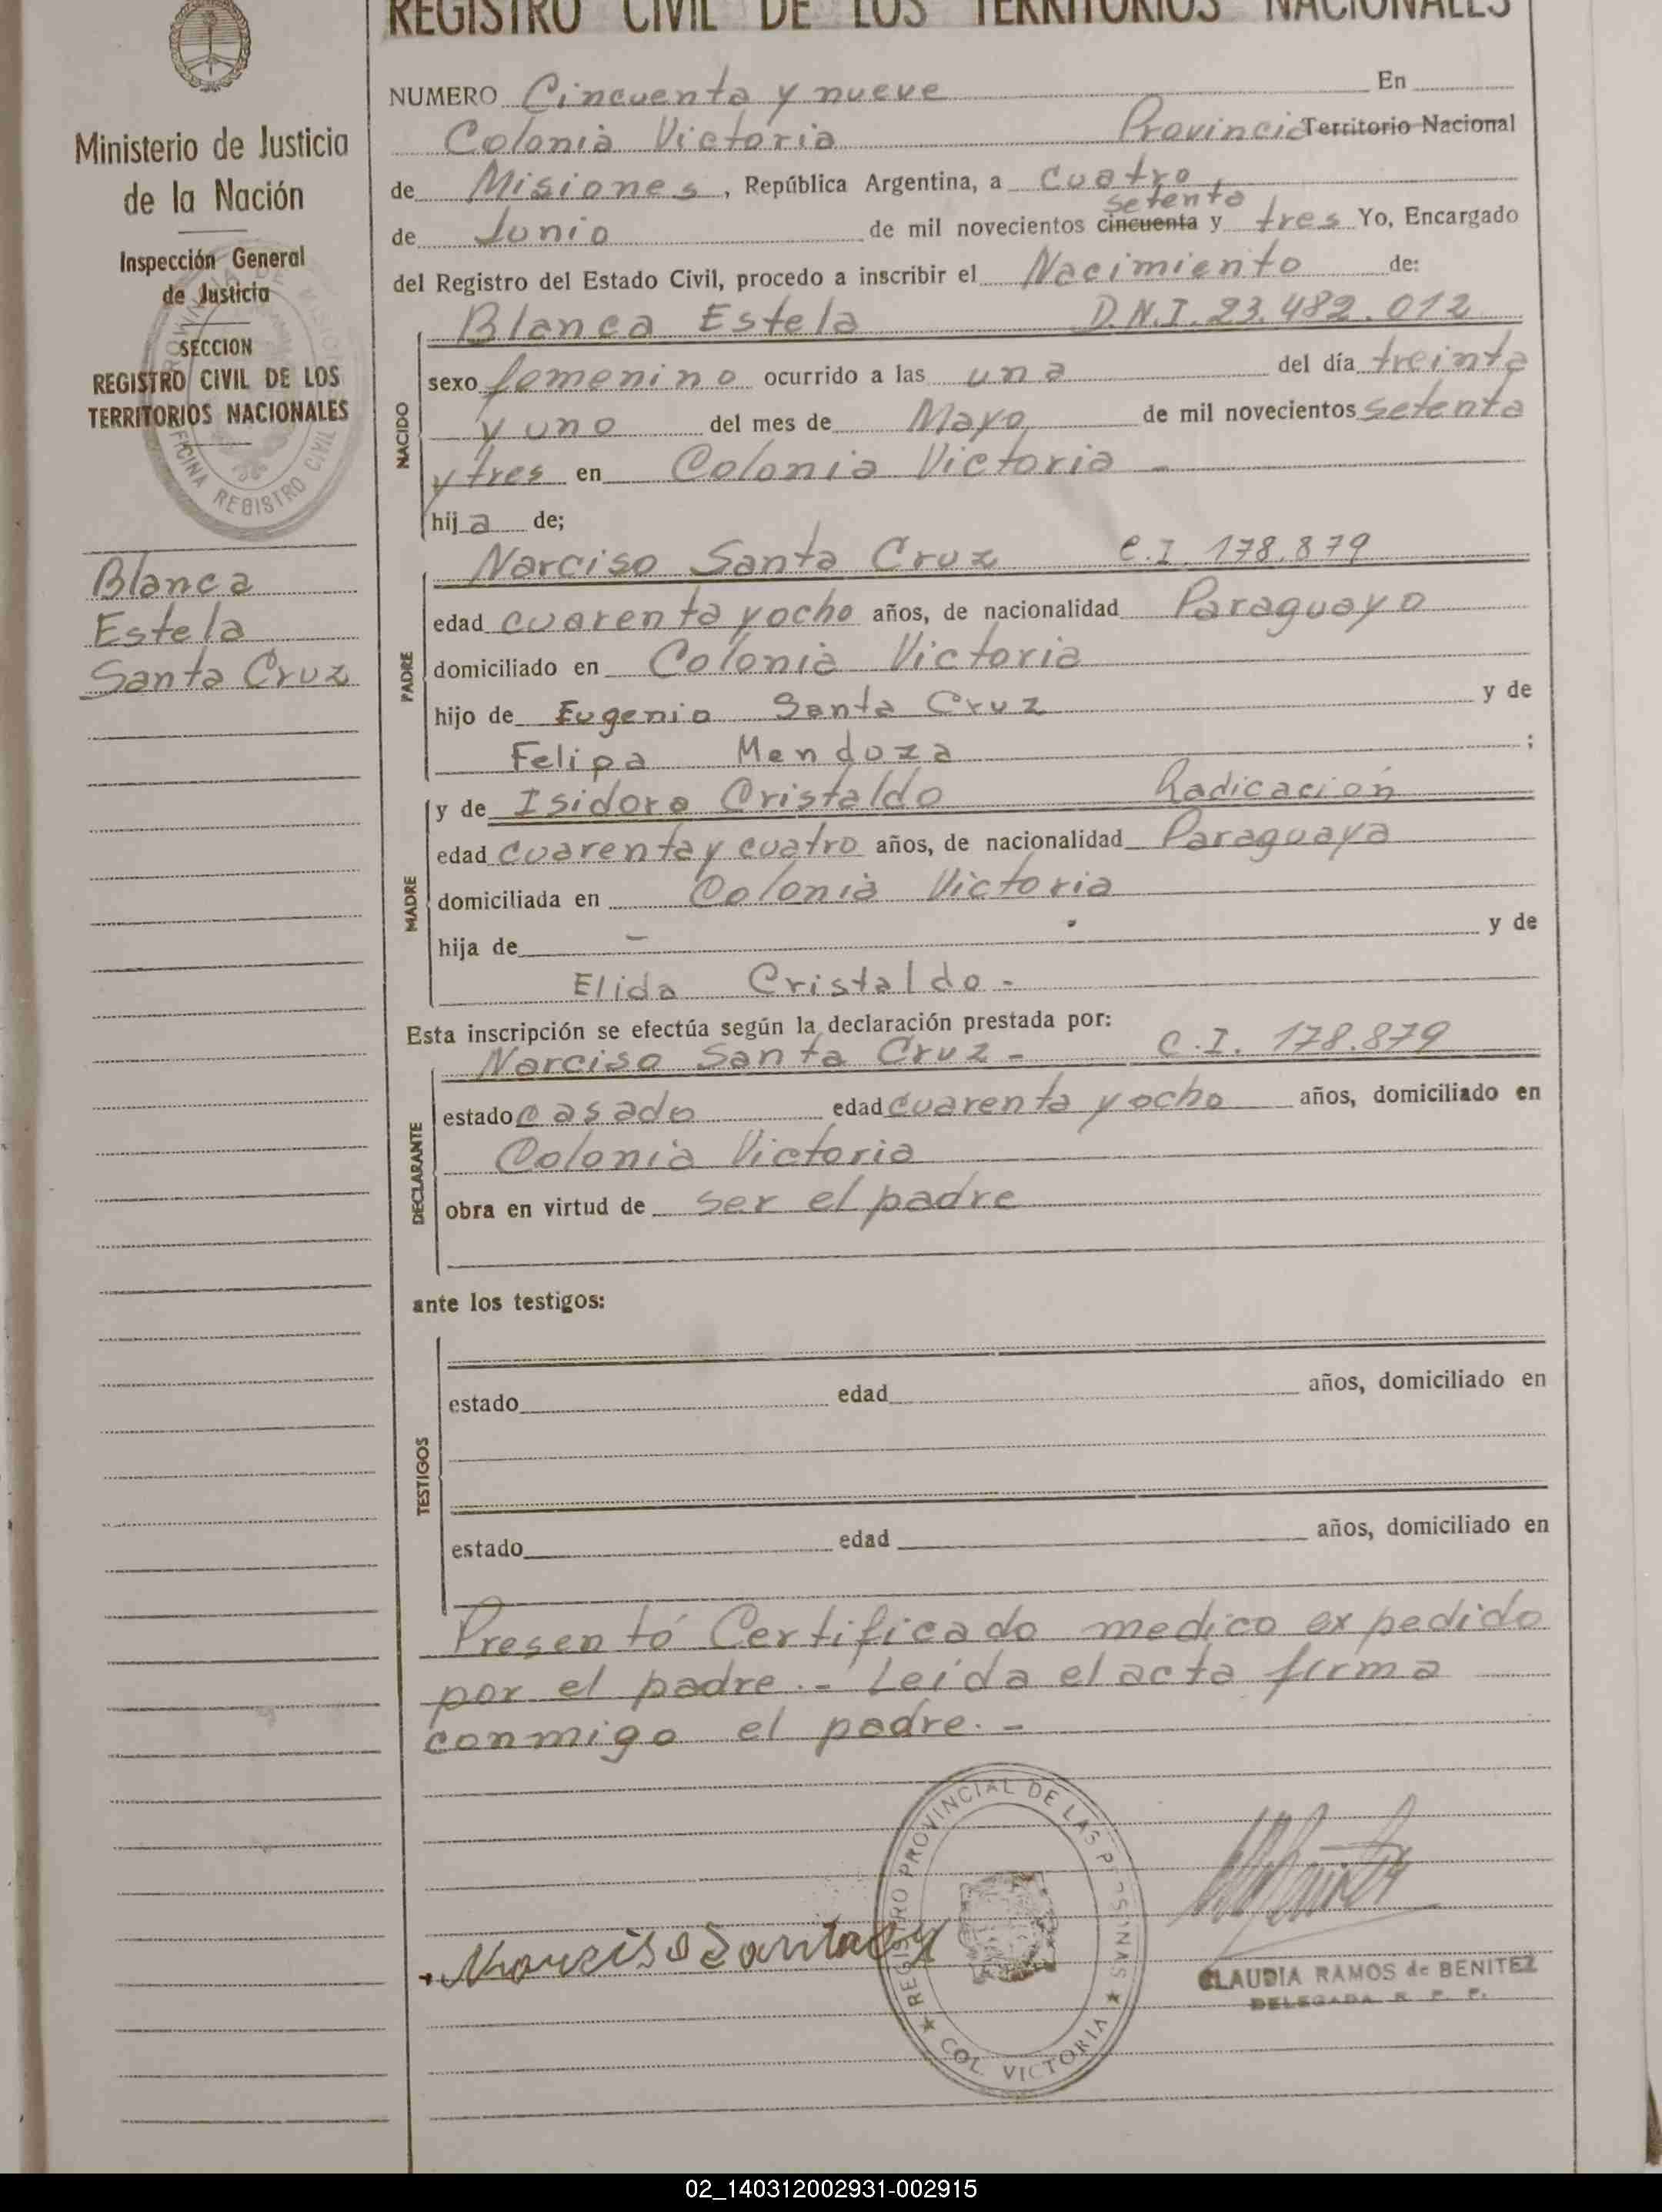 REGISTRO CIVIL DE LOS TERRITORIOS NACIONALES
Ministerio de Justicia
de la Nación
Inspección General
de Justicia
SECCION
REGISTRO CIVIL DE LOS
TERRITORIOS NACIONALES
OFICINA REGISTRO CIVIL
Blanca
Estela
Santa Cruz
NUMERO Cincuenta y nueve En
Colonia Victoria Provincia Territorio Nacional
de Misiones, República Argentina, a cuatro
setenta
de Junio de mil novecientos cincuenta y tres Yo, Encargado
del Registro del Estado Civil, procedo a inscribir el Nacimiento de:
NACIDO
Blanca Estela D.N.I. 23.482.012
sexo femenino ocurrido a las una del día treinta
y uno del mes de Mayo de mil novecientos setenta
y tres en Colonia Victoria -
hija de;
PADRE
Narciso Santa Cruz C.I. 178.879
edad cuarenta y ocho años, de nacionalidad Paraguayo
domiciliado en Colonia Victoria
hijo de Eugenio Santa Cruz y de
Felipa Mendoza ;
MADRE
y de Isidora Cristaldo Radicación
edad cuarenta y cuatro años, de nacionalidad Paraguaya
domiciliada en Colonia Victoria
hija de - y de
Elida Cristaldo -
Esta inscripción se efectúa según la declaración prestada por:
DECLARANTE
Narciso Santa Cruz - C.I. 178.879
estado casado edad cuarenta y ocho años, domiciliado en
Colonia Victoria
obra en virtud de ser el padre
ante los testigos:
TESTIGOS
estado edad años, domiciliado en
estado edad años, domiciliado en
Presentó Certificado medico expedido
por el padre.- Leida el acta firma
conmigo el padre.-
REGISTRO PROVINCIAL DE LAS PERSONAS
COL. VICTORIA
CLAUDIA RAMOS de BENITEZ
DELEGADA R. P. P.
02_140312002931-002915